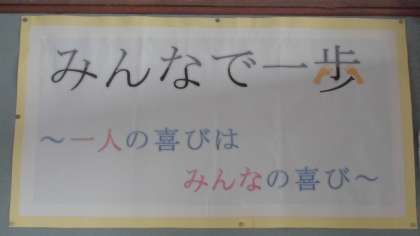 みんなで一歩
～一人の喜びは
みんなの喜び～